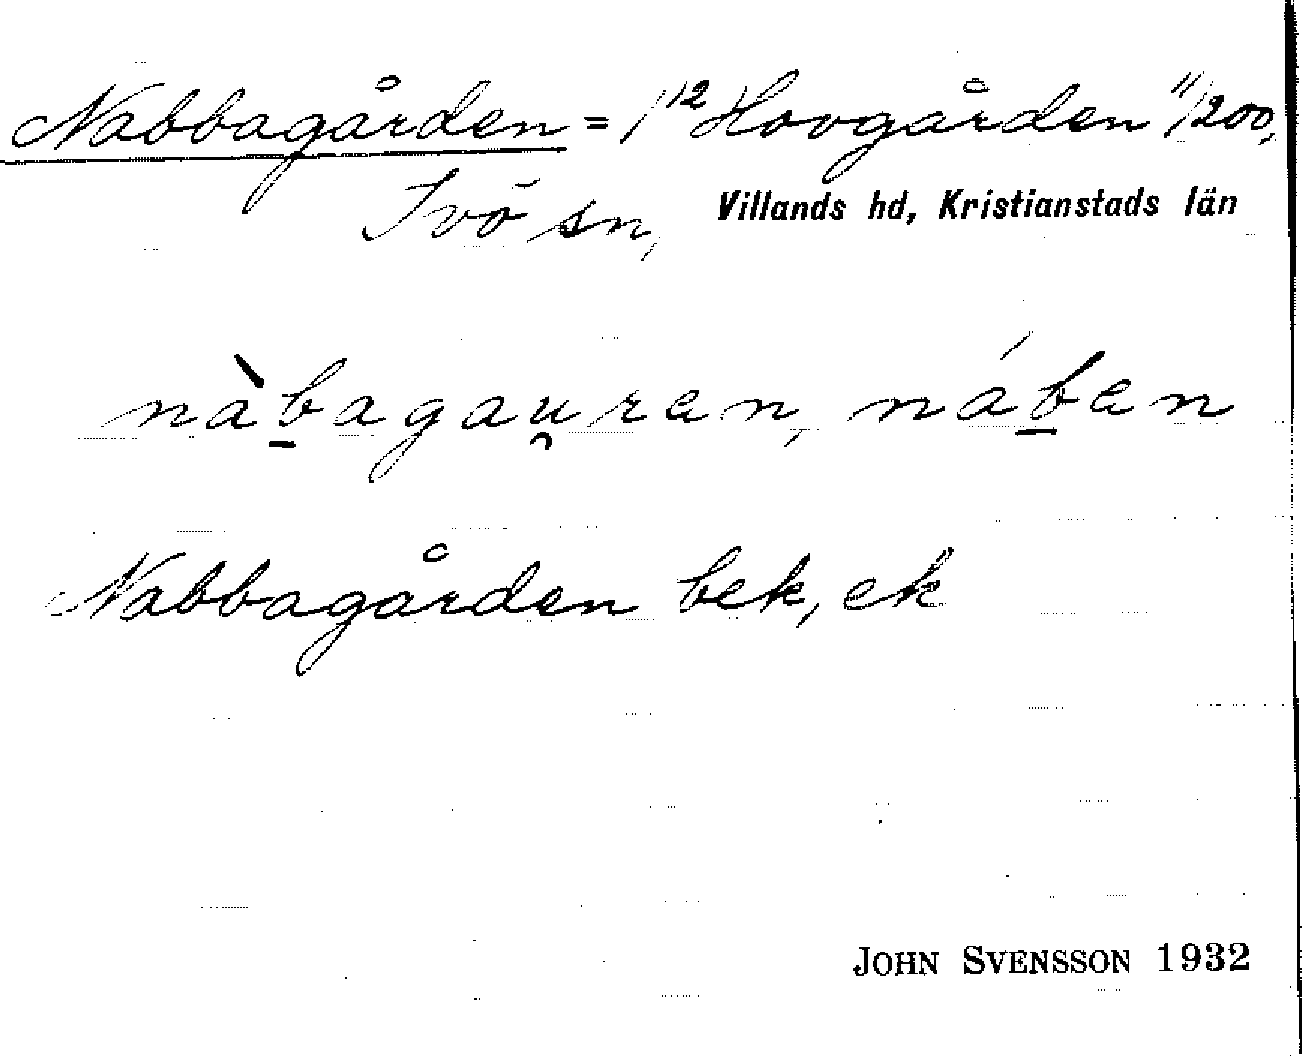 Nabbagården = 1¹² Hovgården 11/200,
Ivö sn, Villands hd, Kristianstads län
nàb̲agau̯ren, náb̲en
Nabbagården bek, ek
JOHN SVENSSON 1932